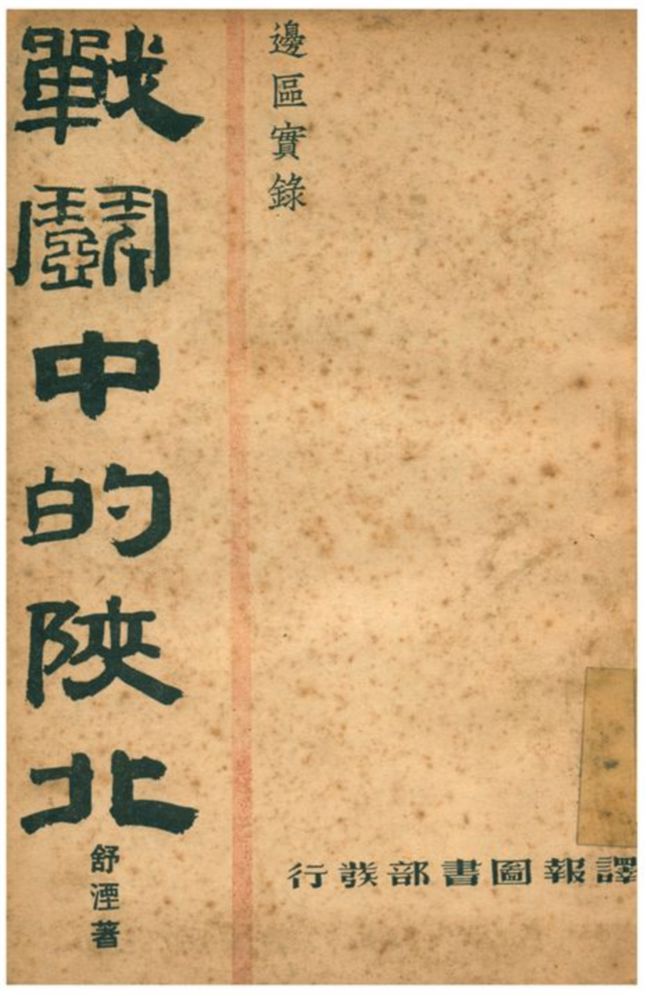 邊區實錄
戰鬭中的陝北
舒湮著
譯報圖書部發行